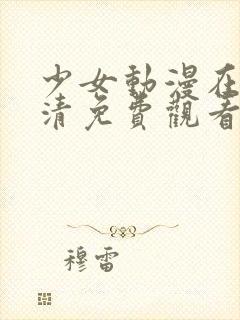 少女動漫在
清免費觀看
穆雷